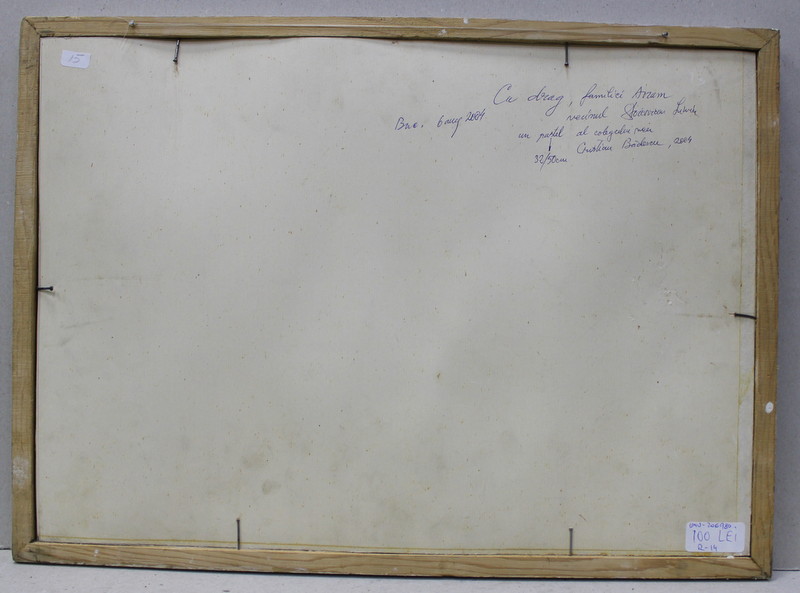 15
Cu drag, familiei Avram
Buc. 6 aug 2004
vecinul
un pastel al colegului meu
32/50cm Cristian Bădescu, 2004
100 LEI
R-14